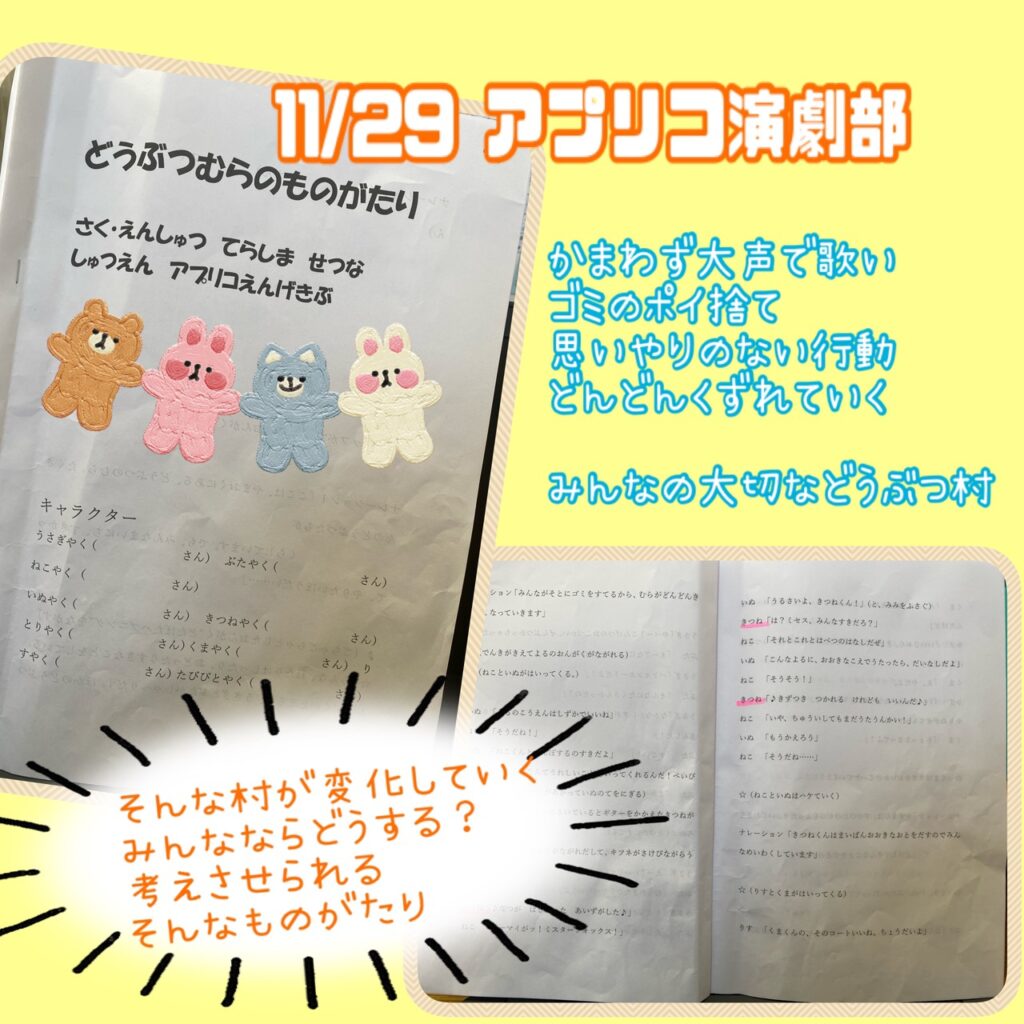 11/29 アプリコ演劇部
どうぶつむらのものがたり
さく・えんしゅつ てらしま せつな
しゅつえん アプリコえんげきぶ
キャラクター
うさぎやく( さん) ぶたやく( さん)
ねこやく ( さん)
いぬやく( さん) きつねやく( さん)
とりやく( さん)くまやく( さん) り
すやく( さん)たびびとやく( さん)
かまわず大声で歌い
ゴミのポイ捨て
思いやりのない行動
どんどんくずれていく
みんなの大切などうぶつ村
そんな村が変化していく
みんなならどうする?
考えさせられる
そんなものがたり
ション「みんながそとにゴミをすてるから、むらがどんどんき
なっていきます」
でんきがきえてよるのおんがくがながれる)
(ねこといぬがはいってくる。)
のこうえんはしずかでいいね」
「そうだね!」
するのすきだよ」
ってくれるんだ!べいび
っていぬのてをにぎる)
ているとギターをかかえたきつねが
ながれだして、キツネがさけびながらう
あいずがした♪」
マイガッ!ミスターフォックス!」
いぬ 「うるさいよ、きつねくん!」(と、みみをふさぐ)
きつね「は?ミセス、みんなすきだろ?」
ねこ 「それとこれとはべつのはなしだぜ」
いぬ 「こんなよるに、おおきなこえでうたったら、だいなしだよ」
ねこ 「そうそう!」
きつね「♪きずつき つかれる けれども いいんだ♪」
ねこ 「いや、ちゅういしてもまだうたうんかい!」
いぬ 「もうかえろう」
ねこ 「そうだね……」
☆(ねこといぬはハケていく)
ナレーション「きつねくんはまいばんおおきなおとをだすのでみん
なめいわくしています」
☆(りすとくまがはいってくる)
りす 「くまくんの、そのコートいいね、ちょうだいよ」